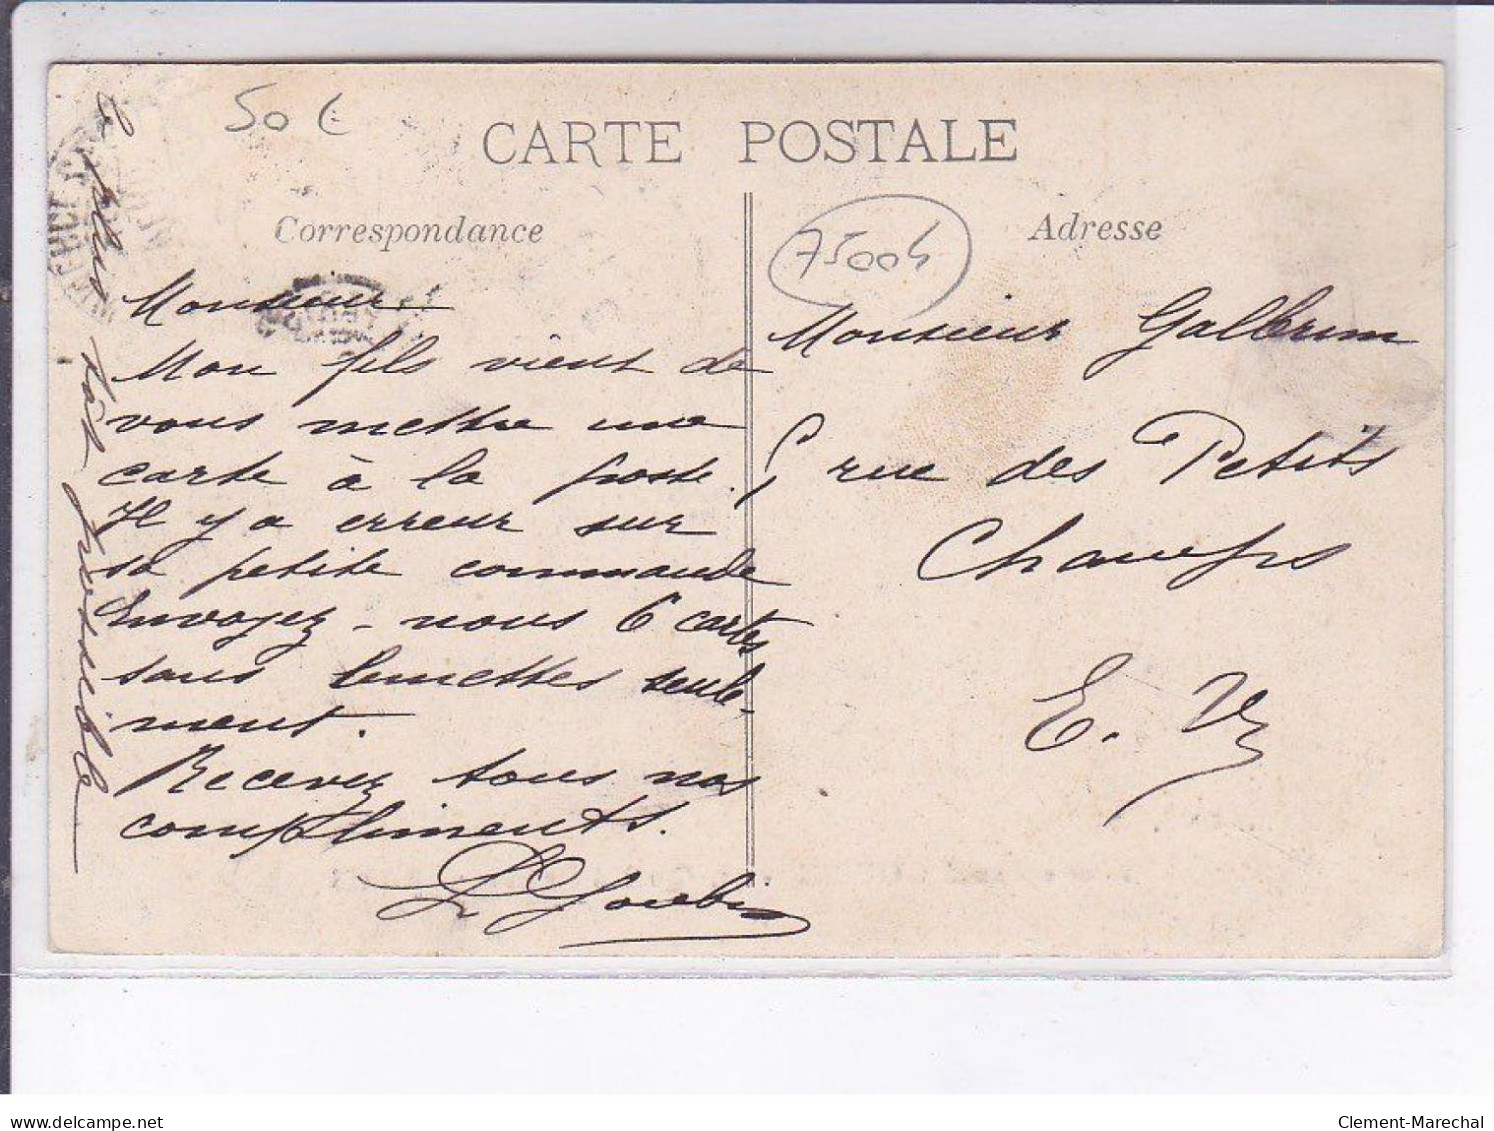 50 €
CARTE POSTALE
Correspondance
Adresse
75004
Monsieur
Mon fils vient de
vous mettre une
carte à la poste.
Il y a erreur sur
sa petite commande
Envoyez-nous 6 cartes
sans lunettes seule-
ment.
Recevez tous nos
compliments.
le plus tôt possible
Monsieur Galbrun
rue des Petits
Champs
E. V.
delcampe.net
Clement-Marechal